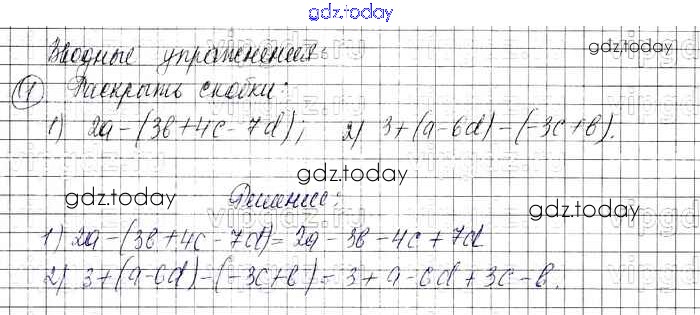 gdz.today
Вводные упражнения:
gdz.today
1 Раскрыть скобки:
1) 2a-(3b+4c-7d); 2) 3+(a-6d)-(-3c+b).
gdz.today gdz.today
Решение:
gdz.today
vipgdz.ru
1) 2a-(3b+4c-7d)=2a-3b-4c+7d
2) 3+(a-6d)-(-3c+b)=3+a-6d+3c-b.